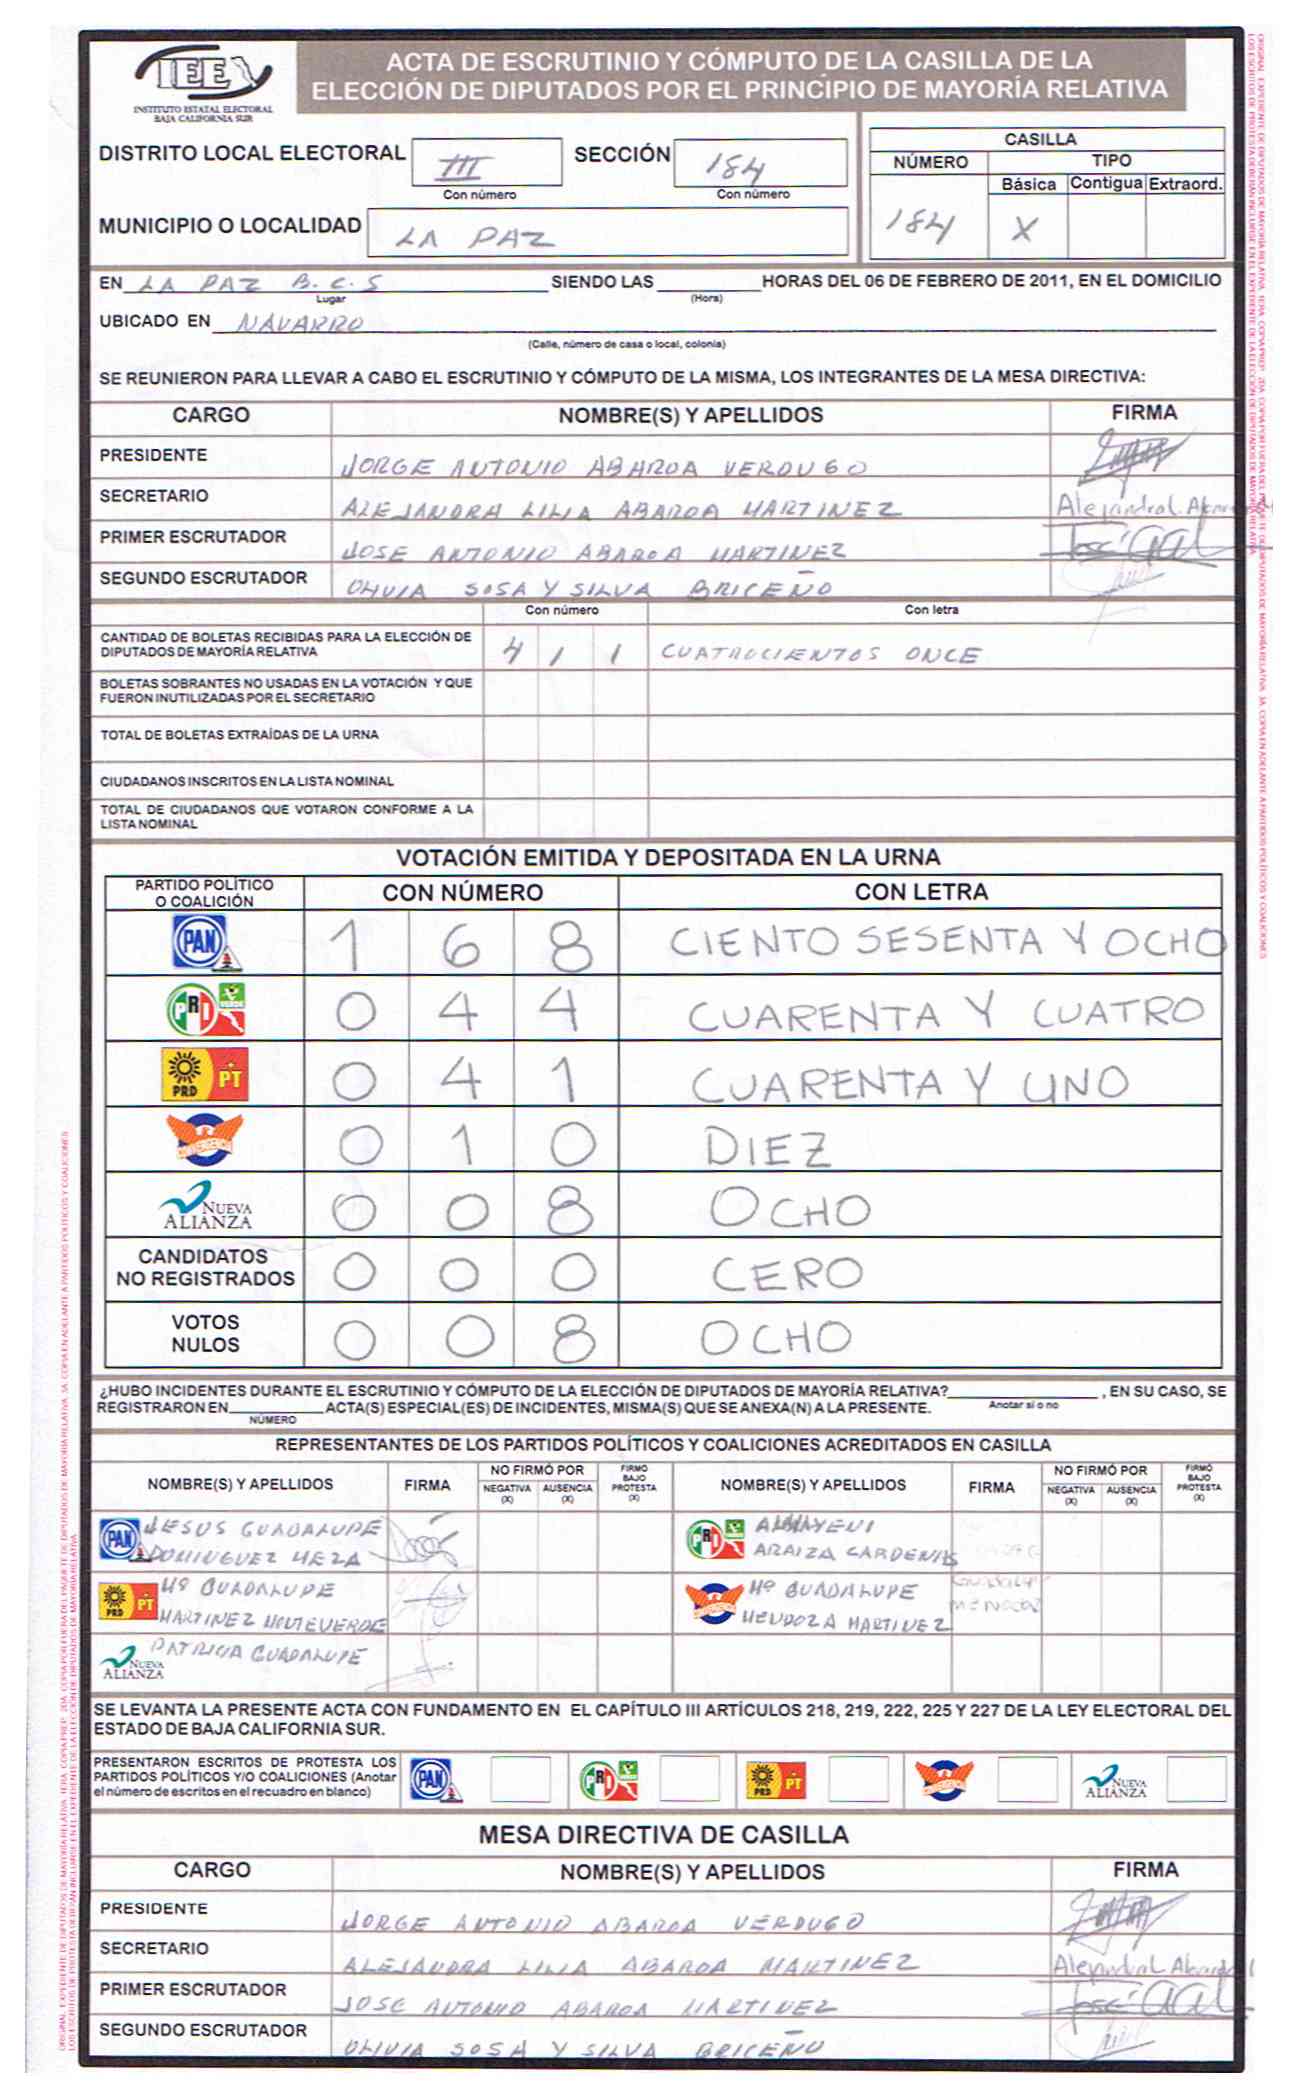 IEE
INSTITUTO ESTATAL ELECTORAL
BAJA CALIFORNIA SUR
ACTA DE ESCRUTINIO Y CÓMPUTO DE LA CASILLA DE LA
ELECCIÓN DE DIPUTADOS POR EL PRINCIPIO DE MAYORÍA RELATIVA
DISTRITO LOCAL ELECTORAL III SECCIÓN 184
Con número Con número
MUNICIPIO O LOCALIDAD LA PAZ
CASILLA
NÚMERO TIPO
Básica Contigua Extraord.
184 X
EN LA PAZ B.C.S SIENDO LAS HORAS DEL 06 DE FEBRERO DE 2011, EN EL DOMICILIO
Lugar (Hora)
UBICADO EN NAVARRO
(Calle, número de casa o local, colonia)
SE REUNIERON PARA LLEVAR A CABO EL ESCRUTINIO Y CÓMPUTO DE LA MISMA, LOS INTEGRANTES DE LA MESA DIRECTIVA:
CARGO NOMBRE(S) Y APELLIDOS FIRMA
PRESIDENTE JORGE ANTONIO ABAROA VERDUGO
SECRETARIO ALEJANDRA LILIA ABAROA MARTINEZ
PRIMER ESCRUTADOR JOSE ANTONIO ABAROA MARTINEZ
SEGUNDO ESCRUTADOR OLIVIA SOSA Y SILVA BRICEÑO
Con número Con letra
CANTIDAD DE BOLETAS RECIBIDAS PARA LA ELECCIÓN DE
DIPUTADOS DE MAYORÍA RELATIVA 4 1 1 CUATROCIENTOS ONCE
BOLETAS SOBRANTES NO USADAS EN LA VOTACIÓN Y QUE
FUERON INUTILIZADAS POR EL SECRETARIO
TOTAL DE BOLETAS EXTRAÍDAS DE LA URNA
CIUDADANOS INSCRITOS EN LA LISTA NOMINAL
TOTAL DE CIUDADANOS QUE VOTARON CONFORME A LA
LISTA NOMINAL
VOTACIÓN EMITIDA Y DEPOSITADA EN LA URNA
PARTIDO POLÍTICO
O COALICIÓN CON NÚMERO CON LETRA
PAN 1 6 8 CIENTO SESENTA Y OCHO
PRI VERDE 0 4 4 CUARENTA Y CUATRO
PRD PT 0 4 1 CUARENTA Y UNO
CONVERGENCIA 0 1 0 DIEZ
NUEVA
ALIANZA 0 0 8 OCHO
CANDIDATOS
NO REGISTRADOS 0 0 0 CERO
VOTOS
NULOS 0 0 8 OCHO
¿HUBO INCIDENTES DURANTE EL ESCRUTINIO Y CÓMPUTO DE LA ELECCIÓN DE DIPUTADOS DE MAYORÍA RELATIVA? , EN SU CASO, SE
REGISTRARON EN ACTA(S) ESPECIAL(ES) DE INCIDENTES, MISMA(S) QUE SE ANEXA(N) A LA PRESENTE. Anotar sí o no
NÚMERO
REPRESENTANTES DE LOS PARTIDOS POLÍTICOS Y COALICIONES ACREDITADOS EN CASILLA
NOMBRE(S) Y APELLIDOS FIRMA NO FIRMÓ POR NEGATIVA (X) AUSENCIA (X) FIRMÓ BAJO PROTESTA (X) NOMBRE(S) Y APELLIDOS FIRMA NO FIRMÓ POR NEGATIVA (X) AUSENCIA (X) FIRMÓ BAJO PROTESTA (X)
PAN JESUS GUADALUPE
DOMINGUEZ MEZA
PRI
ARAIZA CARDENAS
PRD PT Mª GUADALUPE
MARTINEZ MONTEVERDE
CONVERGENCIA Mª GUADALUPE
MENDOZA MARTINEZ
NUEVA ALIANZA PATRICIA GUADALUPE
SE LEVANTA LA PRESENTE ACTA CON FUNDAMENTO EN EL CAPÍTULO III ARTÍCULOS 218, 219, 222, 225 Y 227 DE LA LEY ELECTORAL DEL
ESTADO DE BAJA CALIFORNIA SUR.
PRESENTARON ESCRITOS DE PROTESTA LOS
PARTIDOS POLÍTICOS Y/O COALICIONES (Anotar
el número de escritos en el recuadro en blanco)
PAN PRI PRD PT CONVERGENCIA NUEVA ALIANZA
MESA DIRECTIVA DE CASILLA
CARGO NOMBRE(S) Y APELLIDOS FIRMA
PRESIDENTE JORGE ANTONIO ABAROA VERDUGO
SECRETARIO ALEJANDRA LILIA ABAROA MARTINEZ
PRIMER ESCRUTADOR JOSE ANTONIO ABAROA MARTINEZ
SEGUNDO ESCRUTADOR OLIVIA SOSA Y SILVA BRICEÑO